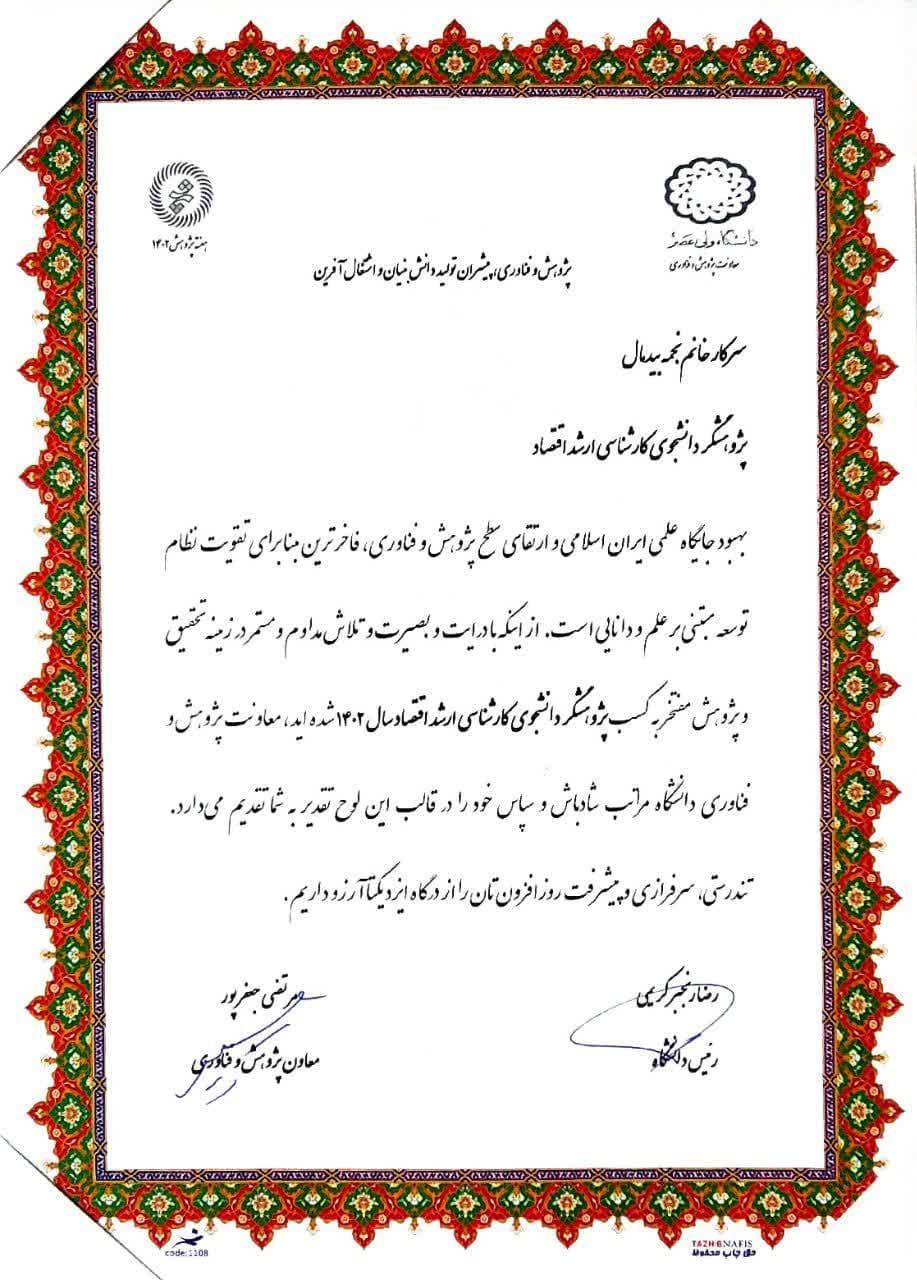 دانشگاه ولی عصر
معاونت پژوهش و فناوری
هفته پژوهش ۱۴۰۲
پژوهش و فناوری، پیشران تولید دانش بنیان و اشتغال آفرین
سرکار خانم نجمه بیدمال
پژوهشگر دانشجوی کارشناسی ارشد اقتصاد
بهبود جایگاه علمی ایران اسلامی و ارتقای سطح پژوهش و فناوری، فاخرترین مبنا برای تقویت نظام
توسعه مبتنی بر علم و دانایی است. از اینکه با درایت و بصیرت و تلاش مداوم و مستمر در زمینه تحقیق
و پژوهش مفتخر به کسب پژوهشگر دانشجوی کارشناسی ارشد اقتصاد سال ۱۴۰۲ شده اید، معاونت پژوهش و
فناوری دانشگاه مراتب شادباش و سپاس خود را در قالب این لوح تقدیر به شما تقدیم می‌دارد.
تندرستی، سرفرازی و پیشرفت روز افزون تان را از درگاه ایزد یکتا آرزو داریم.
رضا رنجبر کریمی
رئیس دانشگاه
مرتضی جعفرپور
معاون پژوهش و فناوری
code:1108
TAZHIBNAFIS
حق چاپ محفوظ